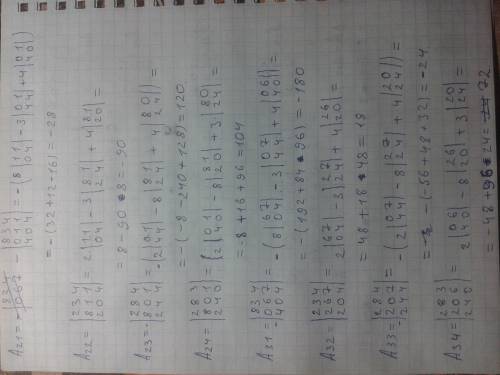 A21 = - |8 3 4; 0 1 1; 4 0 4| = -(8 |1 1; 0 4| - 3 |0 1; 4 4| + 4 |0 1; 4 0|)
= -(32+12-16) = -28
A22 = |2 3 4; 8 1 1; 2 0 4| = 2 |1 1; 0 4| - 3 |8 1; 2 4| + 4 |8 1; 2 0| =
= 8 - 90 - 8 = -90
A23 = - |2 8 4; 8 0 1; 2 4 4| = -(2 |0 1; 4 4| - 8 |8 1; 2 4| + 4 |8 0; 2 4|) =
= -(-8 - 240 + 128) = 120
A24 = |2 8 3; 8 0 1; 2 4 0| = (2 |0 1; 4 0| - 8 |8 1; 2 0| + 3 |8 0; 2 4| =
= -8 + 16 + 96 = 104
A31 = |8 3 4; 0 6 7; 4 0 4| = -(8 |6 7; 0 4| - 3 |0 7; 4 4| + 4 |0 6; 4 0|) =
= -(192 + 84 - 96) = -180
A32 = |2 3 4; 2 6 7; 2 0 4| = 2 |6 7; 0 4| - 3 |2 7; 2 4| + 4 |2 6; 2 0| =
= 48 + 18 - 48 = 18
A33 = - |2 8 4; 2 0 7; 2 4 4| = -(2 |0 7; 4 4| - 8 |2 7; 2 4| + 4 |2 0; 2 4|) =
= -(-56 + 48 + 32) = -24
A34 = |2 8 3; 2 0 6; 2 4 0| = 2 |0 6; 4 0| - 8 |2 6; 2 0| + 3 |2 0; 2 4| =
= -48 + 96 + 24 = 72